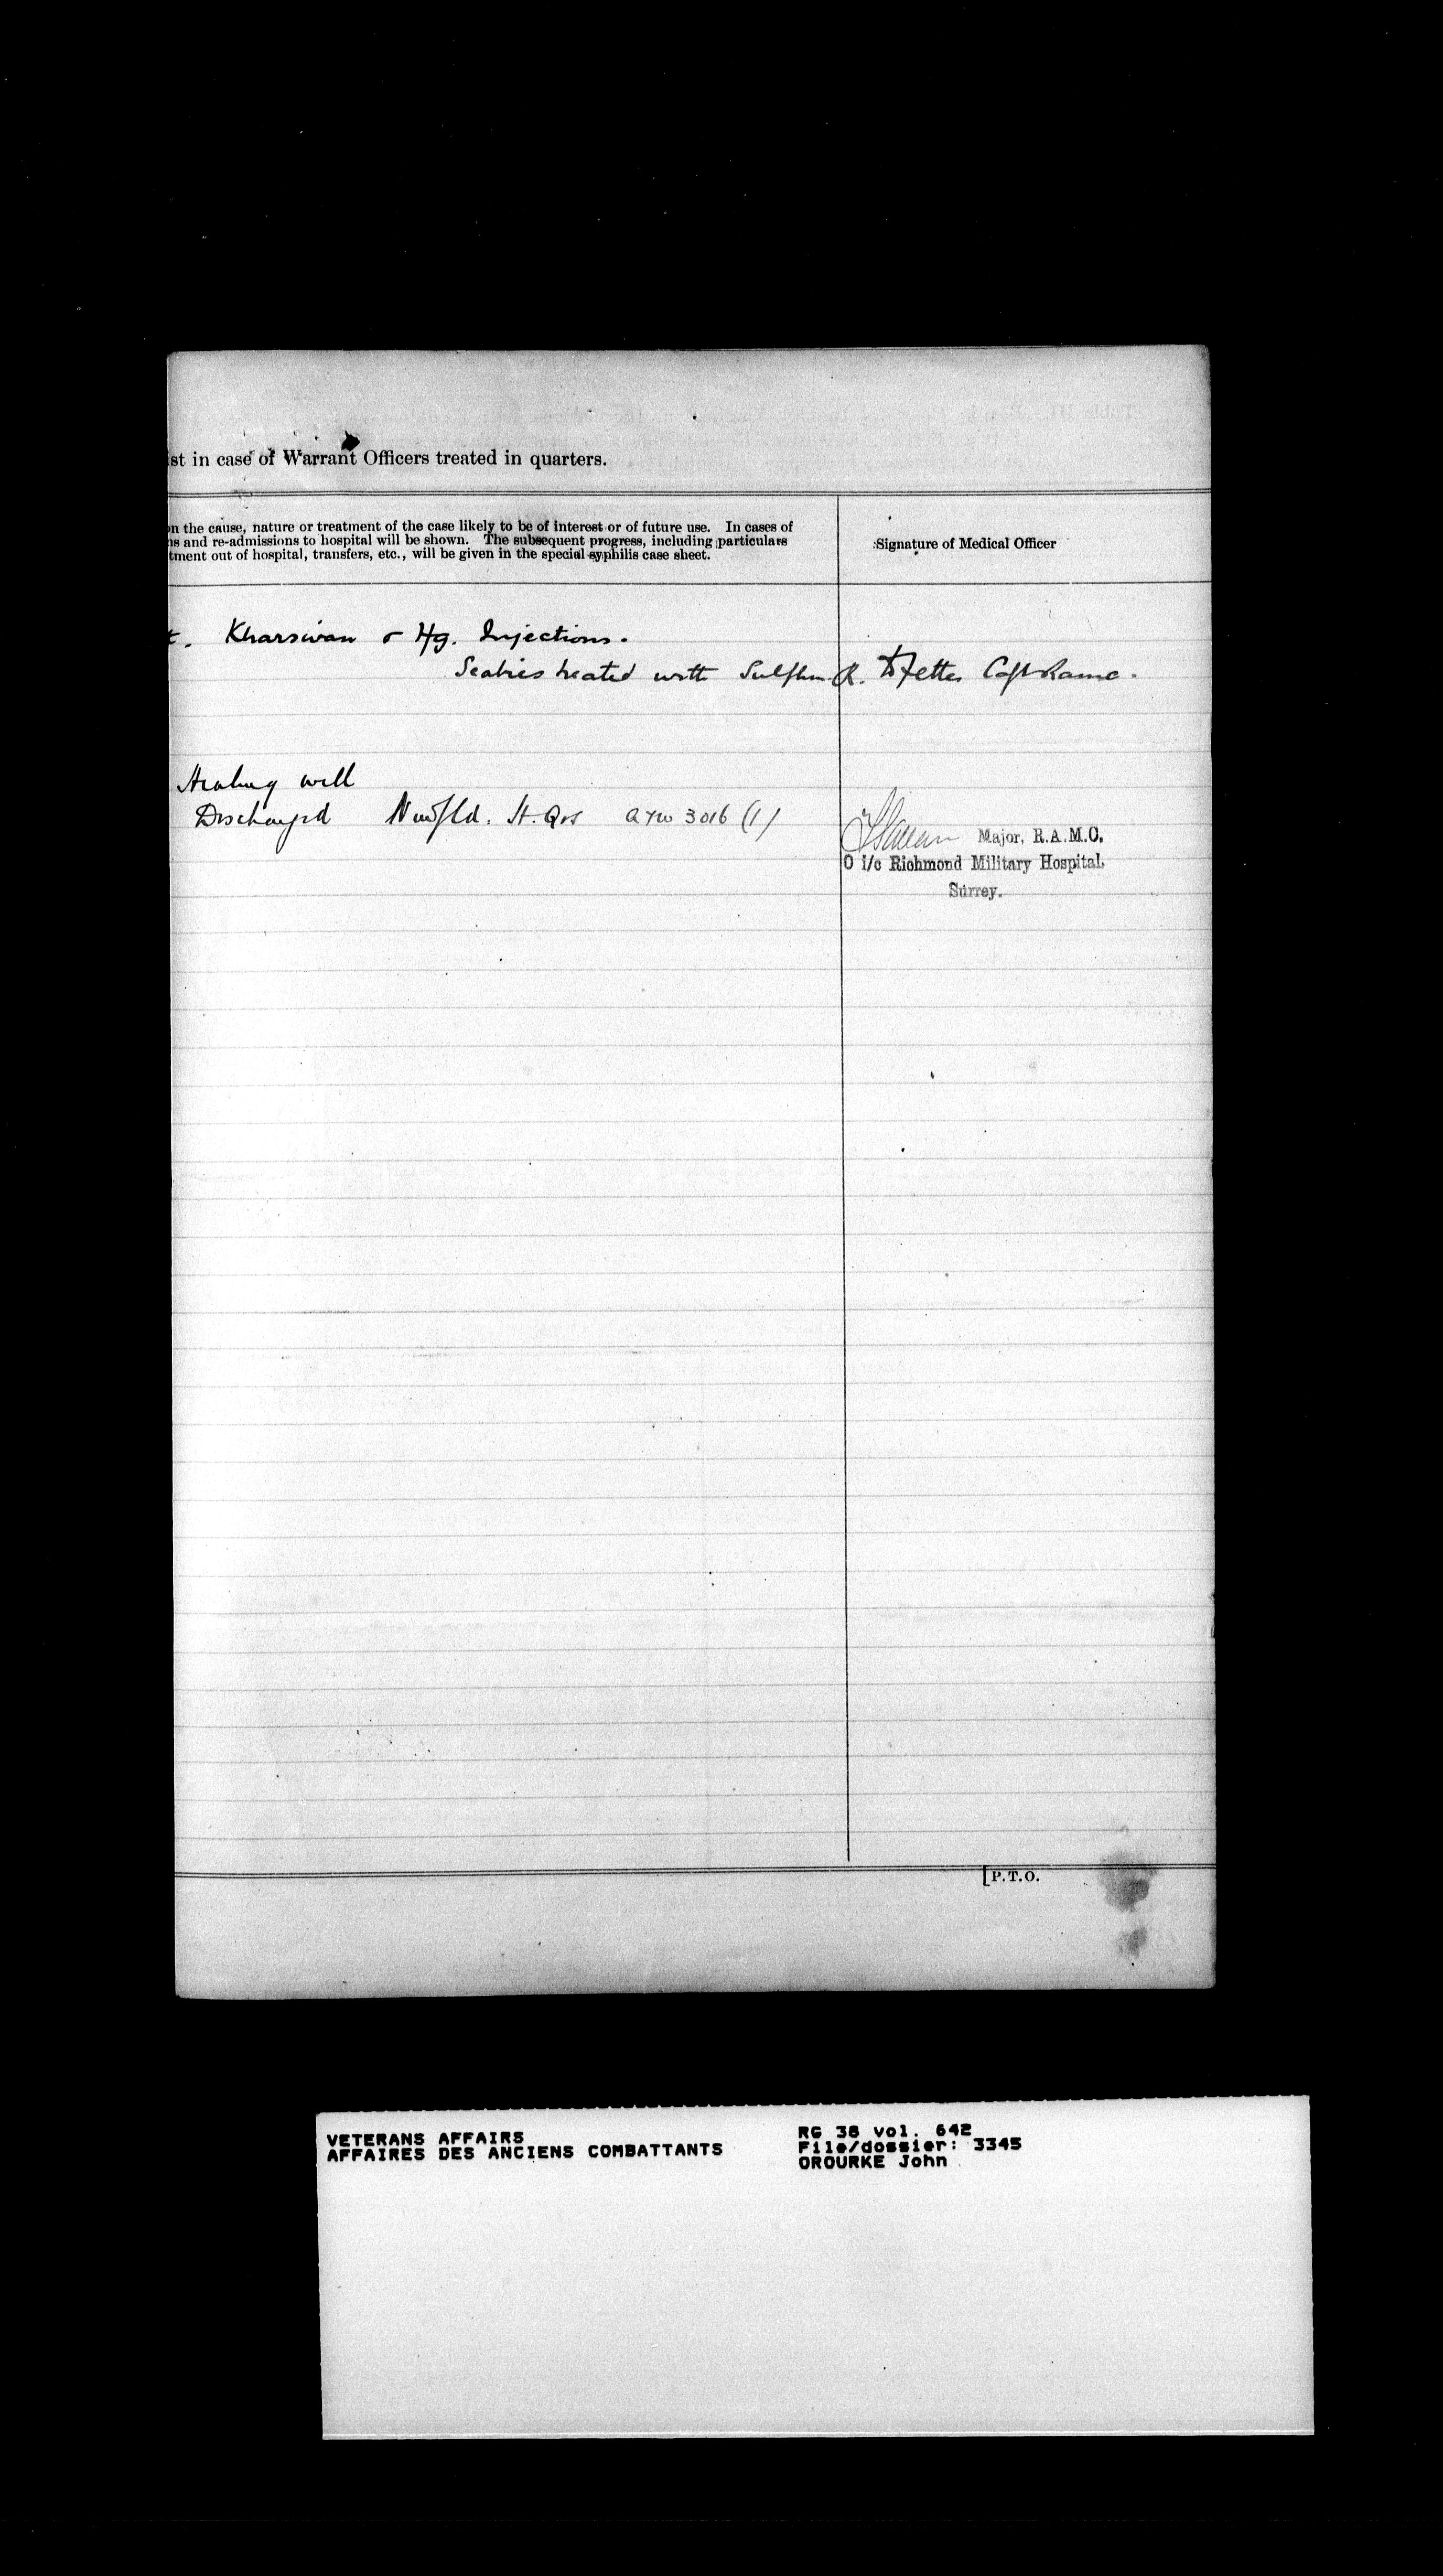 ist in case of Warrant Officers treated in quarters.
on the cause, nature or treatment of the case likely to be of interest or of future use. In cases of
ns and re-admissions to hospital will be shown. The subsequent progress, including particulars
tment out of hospital, transfers, etc., will be given in the special syphilis case sheet.
Signature of Medical Officer
t. Kharsivan & Hg. Injections.
Scabies treated with Sulphur R. Capt Ramc.
Healing well
Discharged Newfld. H. Qrs 3016 (1)
Major, R.A.M.C.
O i/c Richmond Military Hospital,
Surrey.
[P.T.O.
VETERANS AFFAIRS
AFFAIRES DES ANCIENS COMBATTANTS
RG 38 vol. 642
File/dossier: 3345
OROURKE John